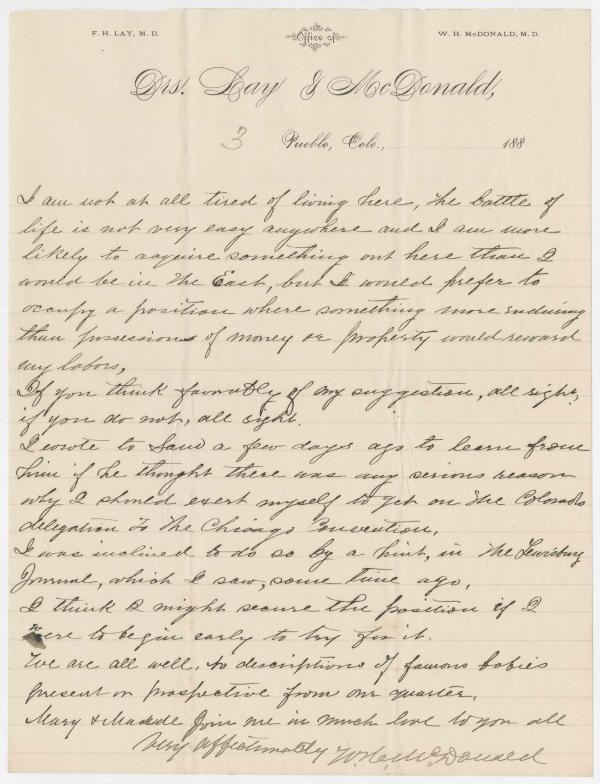 F. H. LAY, M. D.
Office of
W. H. McDONALD, M. D.
Drs. Lay & McDonald,
3
Pueblo, Colo., 188
I am not at all tired of living here, the battle of
life is not very easy anywhere and I am more
likely to acquire something out here than I
would be in the East, but I would prefer to
occupy a position where something more enduring
than possessions of money or property would reward
my labors,
If you think favorably of my suggestion, all right,
if you do not, all right.
I wrote to a few days ago to learn from
him if he thought there was any serious reason
why I should exert myself to get on the Colorado
delegation to the Chicago Convention.
I was inclined to do so by a hint, in the Lewisburg
Journal, which I saw, some time ago.
I think I might secure the position if I
were to begin early to try for it.
We are all well, no descriptions of famous babies
present or prospective from our quarter.
Mary & join me in much love to you all
Very affectionately W. H. McDonald